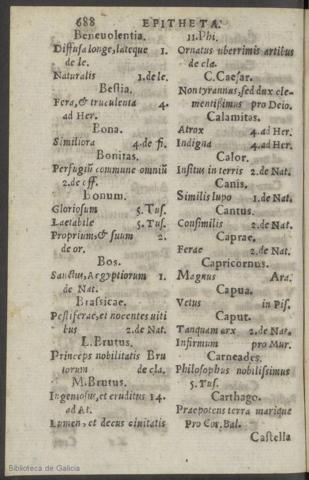 688 EPITHETA.
Beneuolentia.
Diffusa longe, lateque 1.
de le.
Naturalis 1. de le.
Bestia.
Fera, & truculenta 4.
ad Her.
Bona.
Similiora 4. de fi.
Bonitas.
Perfugiũ commune omniũ
2. de off.
Bonum.
Gloriosum 5. Tus.
Laetabile 5. Tus.
Proprium, & suum 2.
de or.
Bos.
Sanctus, Aegyptiorum 1.
de Nat.
Brassicae.
Pestiferae, et nocentes uiti
bus 2. de Nat.
L. Brutus.
Princeps nobilitatis Bru
torum de cla.
M. Brutus.
Ingeniosus, et eruditus 14.
ad At.
Lumen, et decus ciuitatis
11. Phi.
Ornatus uberrimis artibus
de cla.
C. Caesar.
Non tyrannus, sed dux cle-
mentissimus pro Deio.
Calamitas.
Atrox 4. ad Her.
Indigna 4. ad Her.
Calor.
Insitus in terris 2. de Nat.
Canis.
Similis lupo 1. de Nat.
Cantus.
Consimilis 2. de Nat.
Caprae.
Ferae 2. de Nat.
Capricornus.
Magnus Ara.
Capua.
Vetus in Pis.
Caput.
Tanquam arx 2. de Nat.
Infirmum pro Mur.
Carneades.
Philosophus nobilissimus
5. Tus.
Carthago.
Praepotens terra marique
Pro Cor. Bal.
Castella
Biblioteca de Galicia